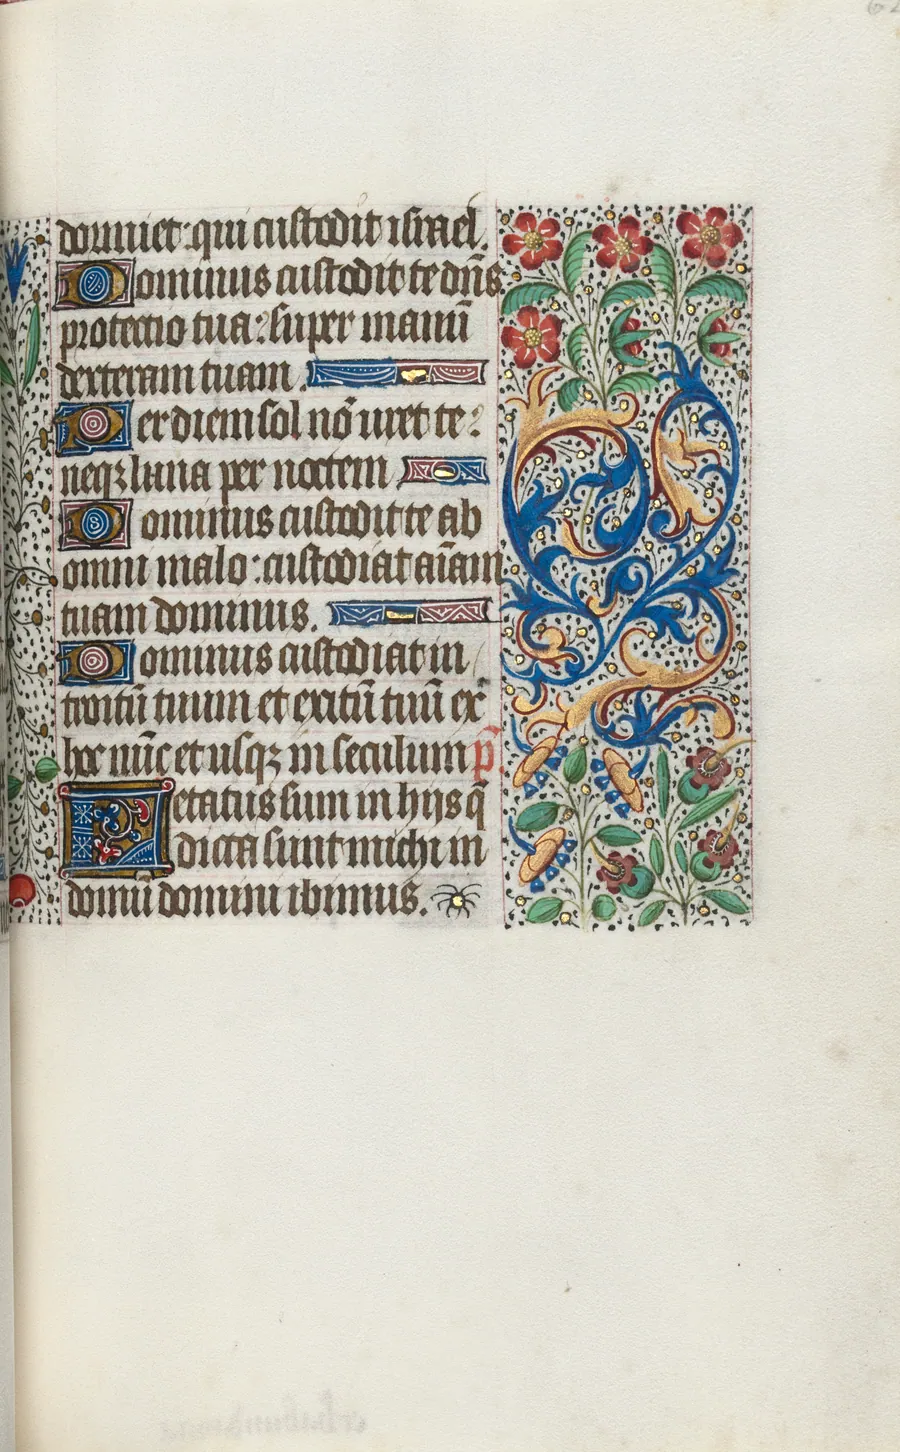 dormiet: qui custodit israel.
Dominus custodit te dn̄s
protectio tua: super manū
dexteram tuam.
Per diem sol nō uret te:
neqꝫ luna per noctem
Dominus custodit te ab
omni malo: custodiat aīam
tuam dominus.
Dominus custodiat in
troitū tuum et exitū tuū ex
hoc nūc et usqꝫ in seculum p̄.
Letatus sum in hijs q̄
dicta sunt michi in
domū domini ibimus.